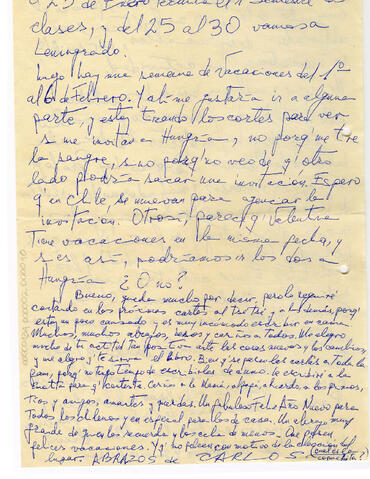 a 25 de Enero termina el 1er semestre de
clases, y del 25 al 30 vamos a
Leningrado.
Luego hay una semana de vacaciones del 1º
al 6 de Febrero. Y ahí me gustaría ir a alguna
parte, y estoy tirando los cortes para ver
si me invitan a Hungría, no porq' me tire
la sangre, sino porq' no veo de q' otro
lado podría sacar una invitación. Espero
q' en Chile se muevan para apurar la
invitación. Otrosí, parece q' Valentina
tiene vacaciones en la misma fecha, y
si es así, podríamos ir los dos a
Hungría ¿O no?
Bueno, queda mucho por decir, pero lo seguiré
contando en las próximas cartas al y a los demás, porq'
estoy un poco cansado y es muy incómodo escribir en
Muchos, muchos abrazos, besos y cariños a todos. Me alegro
mucho de tu actitud tan positiva ante las cosas nuevas y los cambios,
y me alegro q' te sirva el libro. Bien, q' se peleen las cartas a toda la
fam, porq' no tengo tiempo de escribirles de a uno. Le escribiré a la
para q' conteste. Cariños a la Mamá, al papi, a los primos,
tíos y amigos, Un fabuloso Feliz Año Nuevo para
todos los chilenos y en especial para los de casa. Un abrazo muy
grande de quien los recuerda y los echa de menos. Que pasen
felices vacaciones. Y q' no peleen con motivo de la
lugar. ABRAZOS de CARLOS (